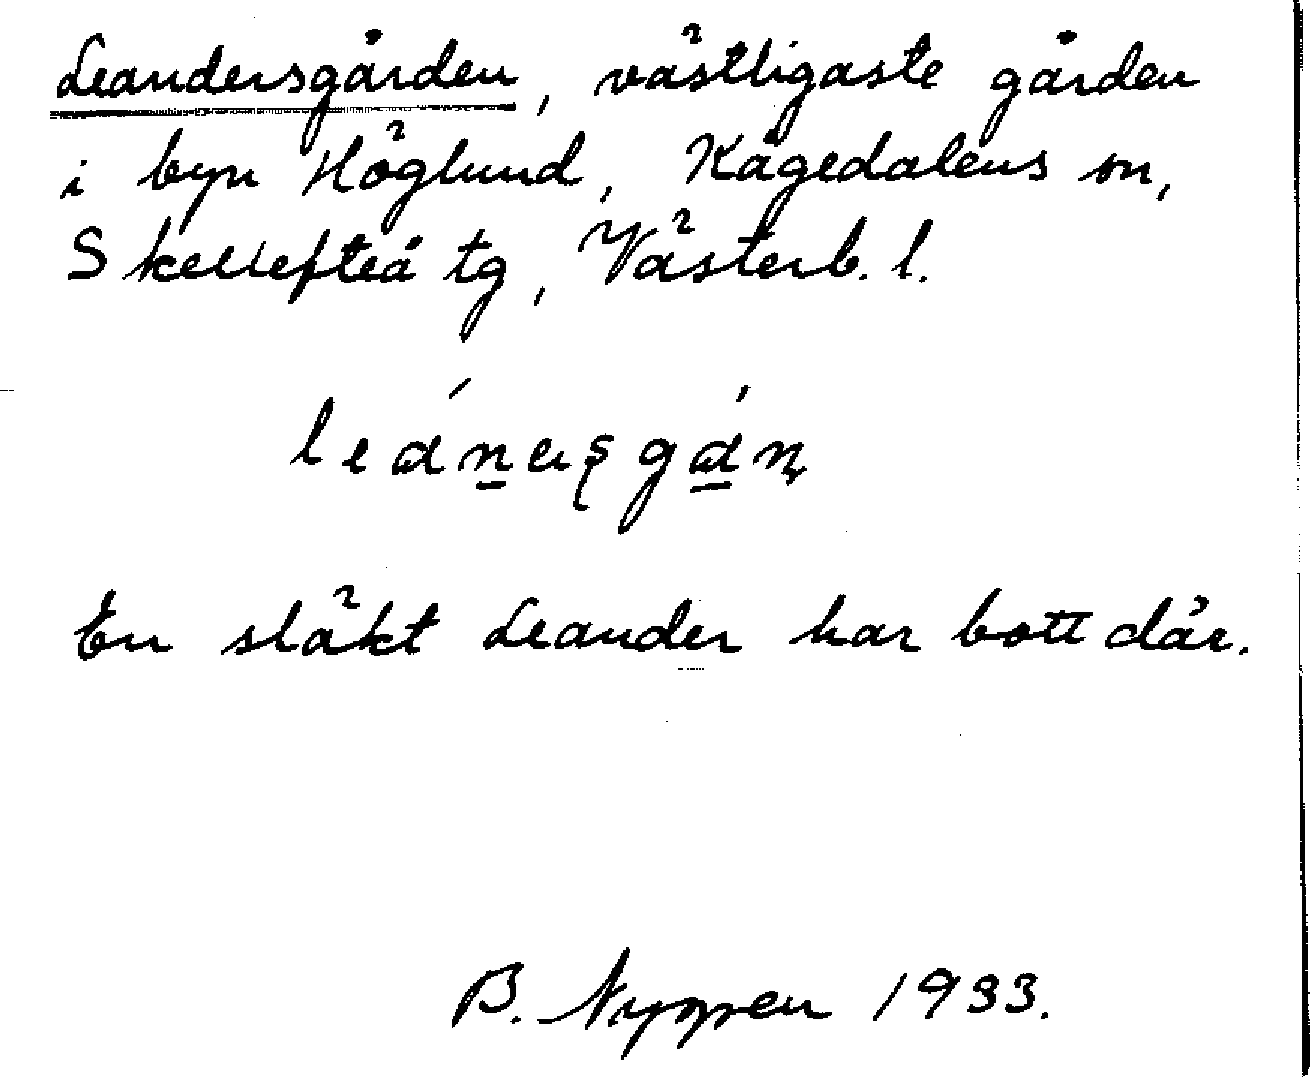 Leandersgården, västligaste gården
i byn Höglund, Kågedalens sn,
Skellefteå tg, Västerb. l.
En släkt Leander har bott där.
B. Nygren 1933.